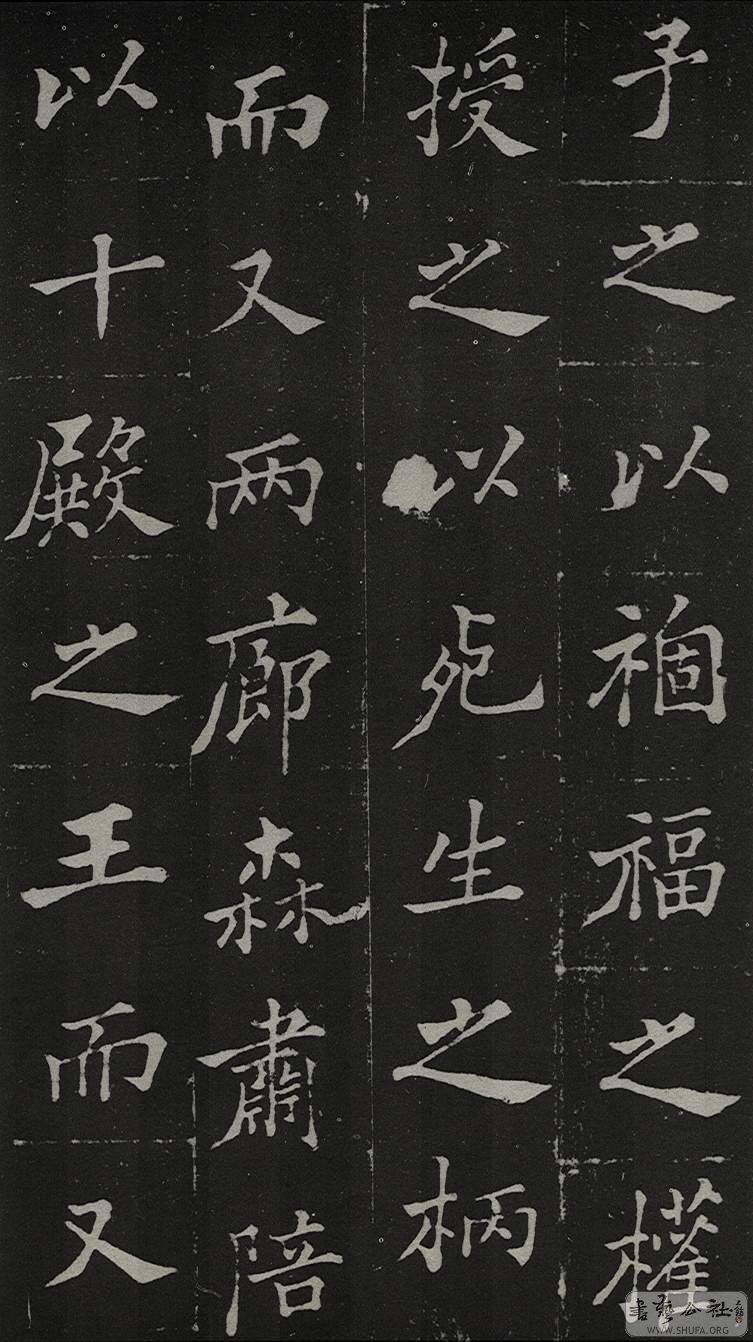 子之以禍福之權
授之以死生之柄
而又两廊森肅陪
以十殿之王而又
書藝公社
WWW.SHUFA.ORG